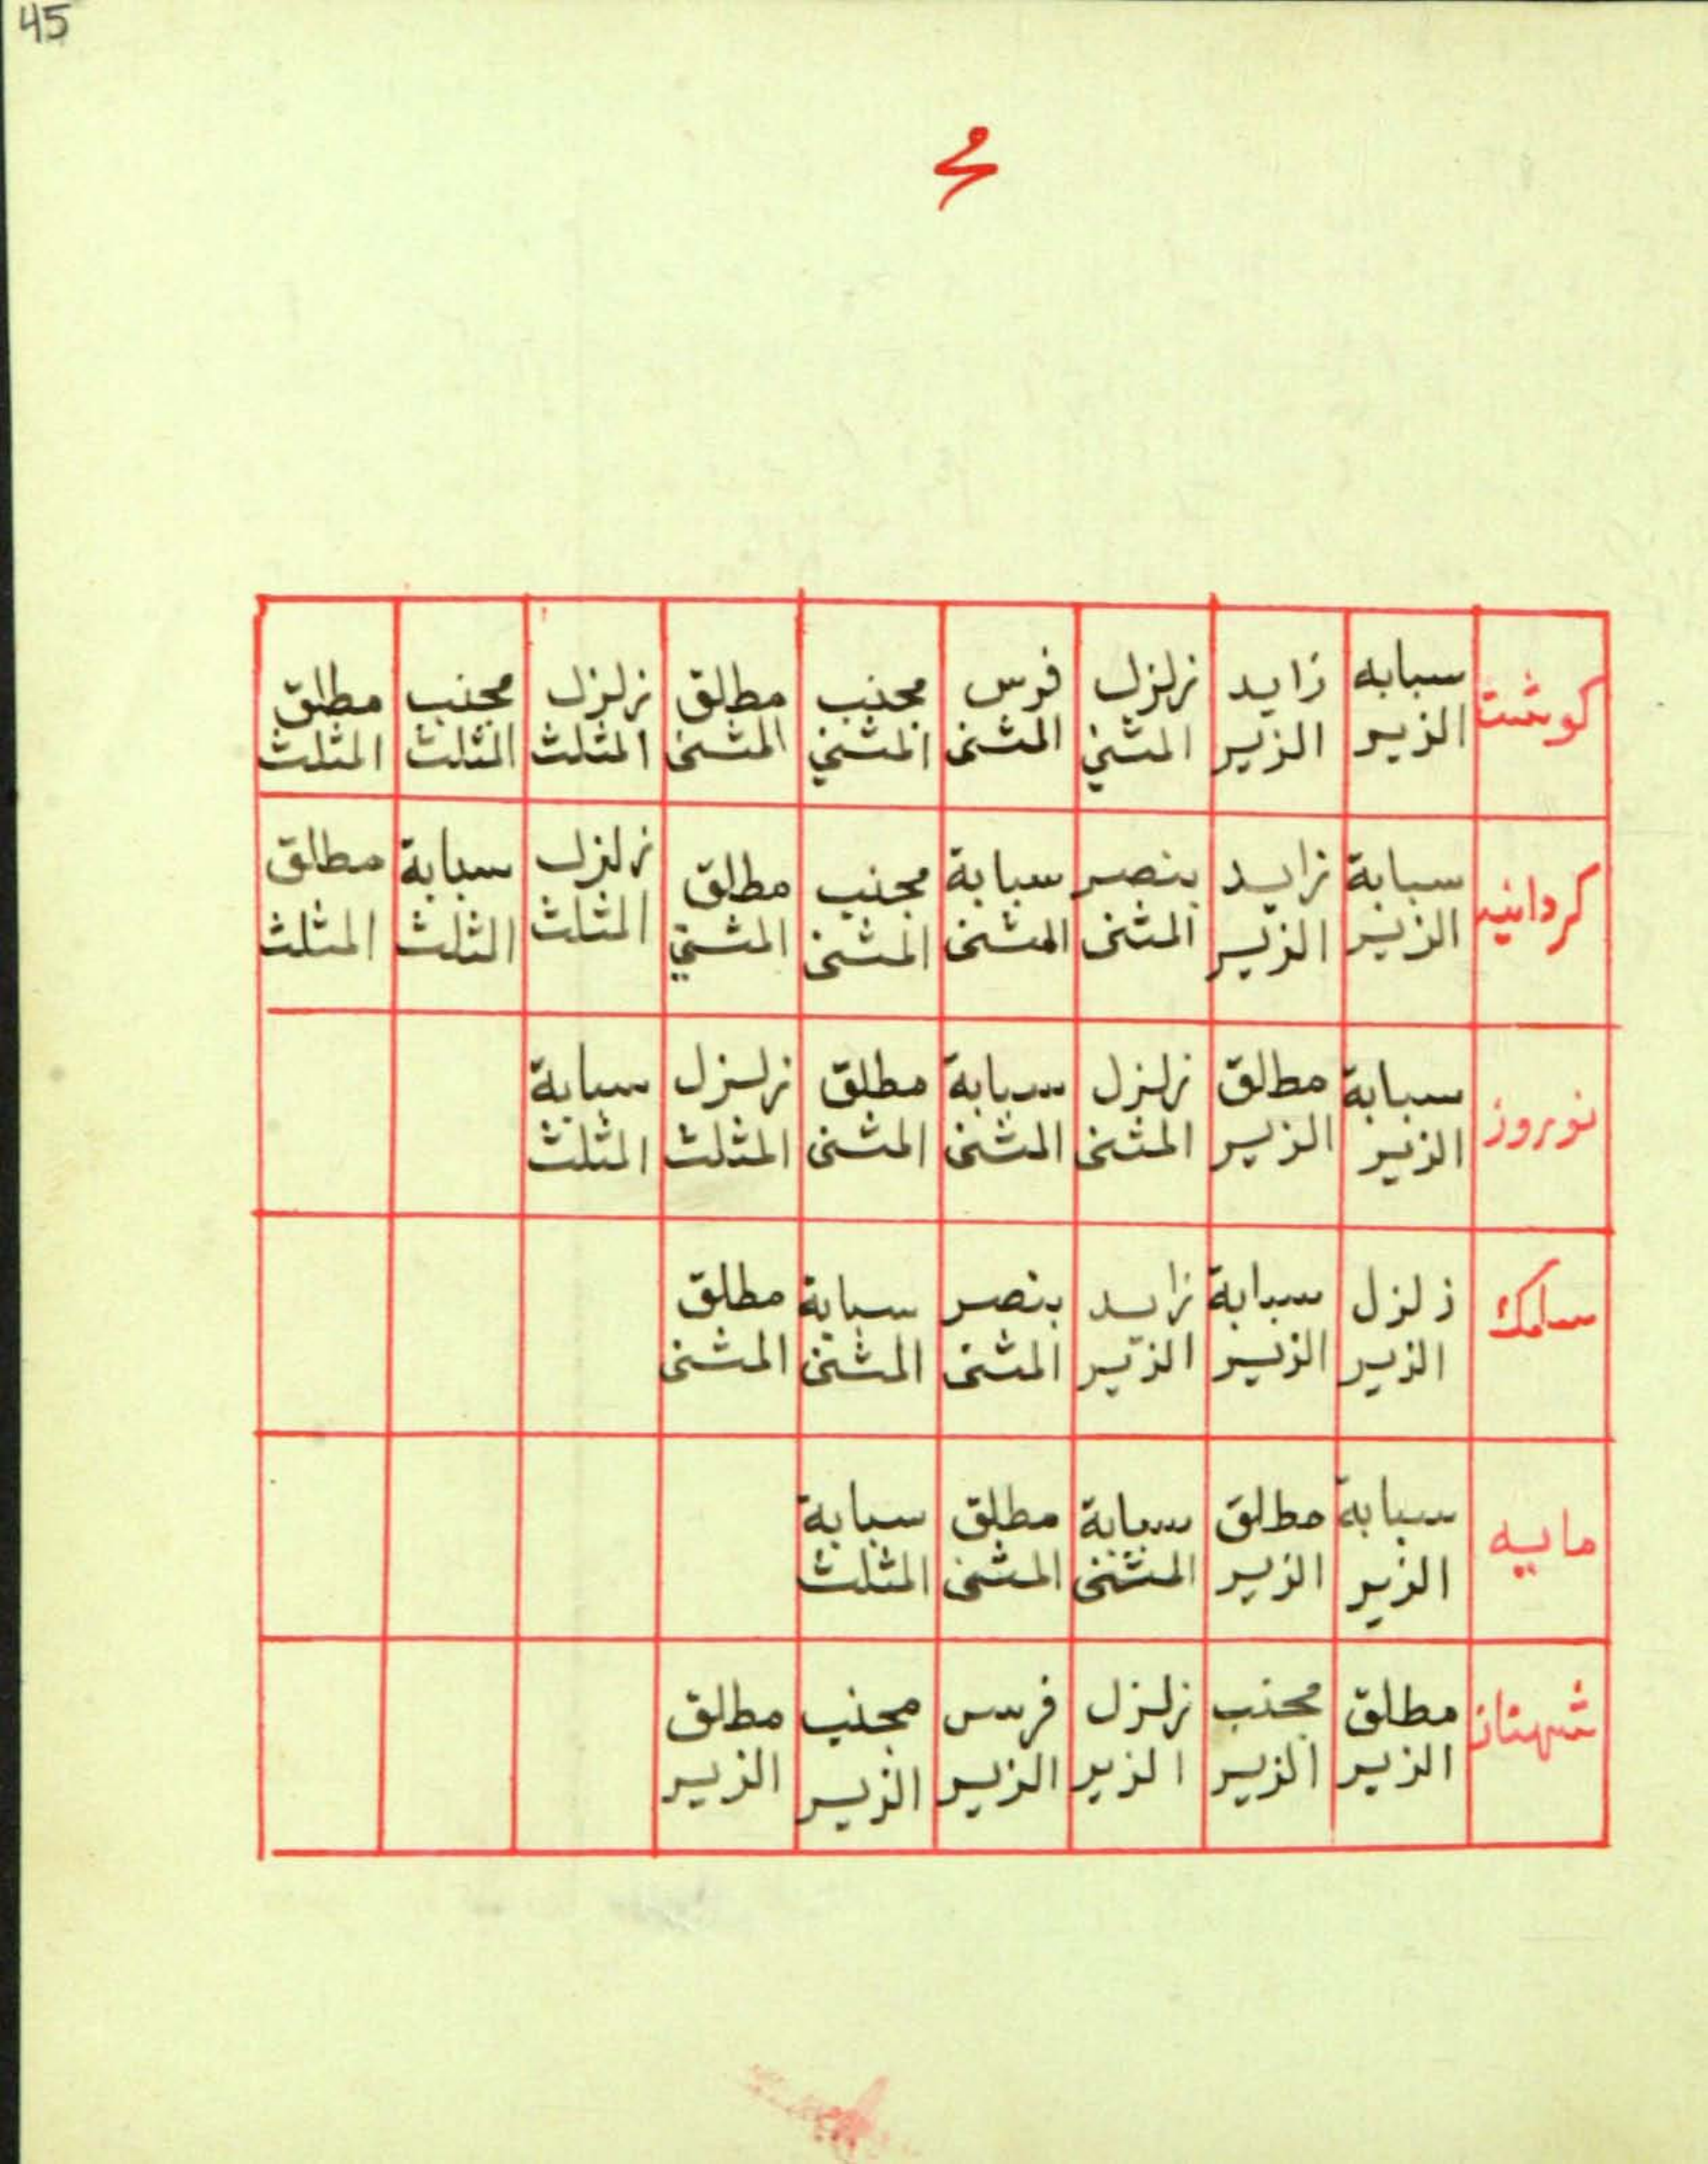 45
كوشت سبابه الزير زايد الزير زلزل المثني فرس المثنى مجنب المثني مطلق المثنى زلزل المثلث مجنب المثلث مطلق المثلث
كردانيه سبابة الزير زايد الزير بنصر المثنى سبابة المثنى مجنب المثنى مطلق المثني زلزل المثلث سبابة المثلث مطلق المثلث
نوروز سبابة الزير مطلق الزير زلزل المثنى سبابة المثنى مطلق المثنى زلزل المثلث سبابة المثلث
سلمك زلزل الزير سبابة الزير زايد الزير بنصر المثنى سبابة المثنى مطلق المثنى
مايه سبابة الزير مطلق الزير سبابة المثنى مطلق المثنى سبابة المثلث
شهناز مطلق الزير مجنب الزير زلزل الزير فرس الزير مجنب الزير مطلق الزير